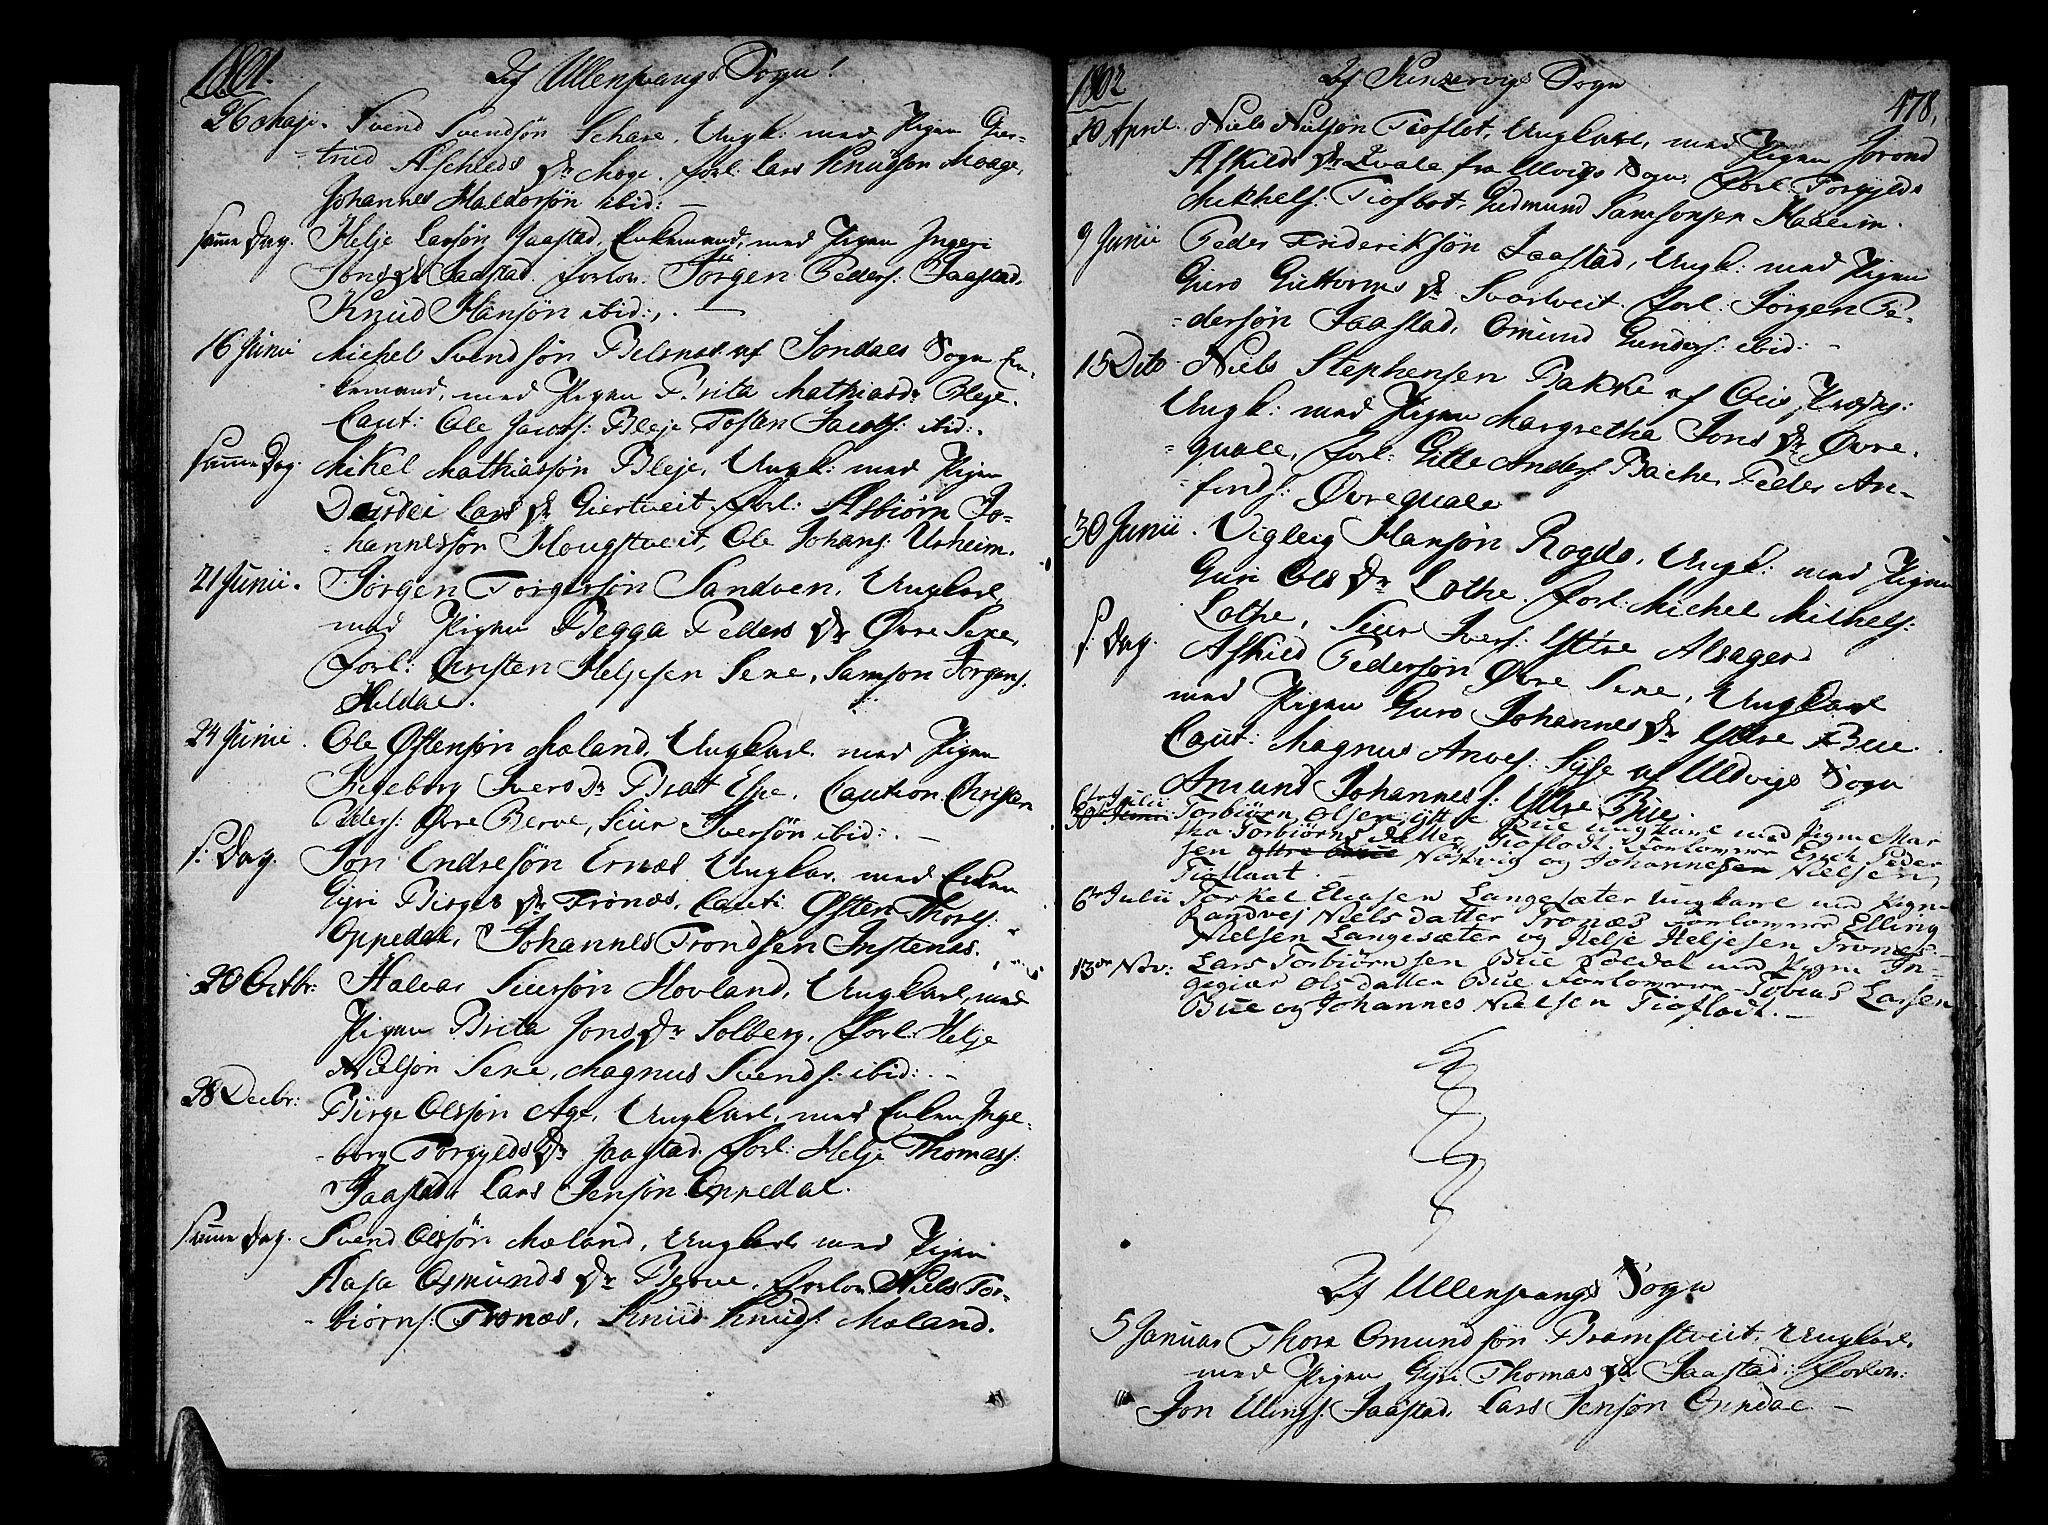 1801.
Af Ullensvangs Sogn!
26 Maji. Svend Svendsøn Schare, Ungk: med Pigen Gier-
-trud Aschilds Dr Moge. forl: Lars Knudsøn Maage,
Johannes Haldorsøn ibid: —
samme Dag. Helje Larsøn Jaastad, Enkemand, med Pigen Ingeri
Jons Dr Jaastad. forlov. Jørgen Peders: Jaastad,
Knud Hansøn ibid:, . —
16 Junii Michel Svendsøn Belsnæs af Jondals Sogn En-
kemand, med Pigen Brita Mathiasdr Bleje.
Caut: Ole Jacobs: Bleje, Tosten Jacobs: ibid:.
samme Dag. Mikel Mathiassøn Bleje, Ungk: med Pigen
Durdei Lars Dr Giertveit, forl: Asbiørn Jo-
-hannessøn Hougstveit, Ole Johans: Urheim.
21 Junii. Jørgen Torgersøn Sandven, Ungkarl,
med Pigen Begga Peders Dr Øvre Sexe,
forl: Christen Heljesen Sexe, Samson Jørgens:
Hildal.
24 Junii. Ole Østensøn Mæland, Ungkarl, med Pigen
Ingeborg Ivers Dr Bratt Espe, Caution Christen
Peders: Øvre Berve, Siur Iversøn ibid: —
s: Dag. Jon Endresøn Ernæs, Ungkar, med Enken
Gyri Birges Dr Tronæs, Caut: Østen Thors:
Oppedal, & Johannes Trondsen Instenæs.
20 Octbr: Halvar Siursøn Hovland, Ungkarl, med
Pigen Brita Jons Dr Solberg, forl: Helje
Nielsøn Sexe, Magnus Svends: ibid: . —
28 Decbr: Birge Olssøn Age, Ungkarl, med Enken Inge-
-borg Torgylds Dr Jaastad. forl: Helje Thomass:
Jaastad, Lars Jensøn Oppedal.
samme Dag. Svend Olssøn Mæland, Ungkarl med Pigen
Aasa Osmunds Dr Berve, forlov: Niels Tor-
-biørns: Tronæs, Knud Knuds: Mæland.
1802
Af Kinzervigs Sogn
478.
20 April. Niels Nielsøn Tioflot, Ungkarl, med Pigen Jorond
Askilds Dr Qvale fra Ulvigs Sogn, forl: Torgylds
Mikkels: Tioflot, Gudmund Samsonsen Haaeim.
9 Junii Peder Frideriksøn Jaastad, Ungk: med Pigen
Guro Guttorms Dr Svartveit forl: Jørgen Pe-
-dersøn Jaastad, Omund Gunders: ibid: —
15 Dito Niels Stephensen Bakke af Præstg:
Ungk: med Pigen Margretha Jons Dr Øvre.
-quale, forl: Gitle Anders: Bache, Peder An-
-finds: Øvrequale
30 Junii. Vigleig Hansøn Rogde, Ungk: med Pigen
Guri Ols Dr Lothe. forl: Michel Mikhels:
Lothe, Siur Ivers: Yttre Alsager
s: Dag. Askild Pedersøn Øvre Sexe, Ungkarl
med Pigen Guro Johannes Dr Yttre Bue.
Caut: Magnus Arnes: Syse af Uldvigs Sogn
Amund Johannes s: Yttre Bue.
6te Julii Torbiörn Olsen ytt e Bue ungkarl med Pigen Mar
tha Torbiörns Datter Tioflodt, forlovere Erich Peder
sen Nøstvig og Johannesen Nielsen
Tioflaat.
6te Julii Torkel Eliasen Langesæter ungkarl med Pigen
Randvej Niels datter Tronæs forlovere Elling
Nielsen Langesæter og Helje Heljesen Tronæs.
13de Nov: Lars Torbiörnsen Bue Soldat med Pigen In-
gegiær Olsdatter Bue Forlovere Tobias Larsen
Bue og Johannes Nielsen Tioflodt. —
Af Ullensvangs Sogn
5 Januar Thore Omundsøn Bramstveit, Ungkarl,
med Pigen Gyri Thomas Dr Jaastad: forlov:
Jon Ellings: Jaastad, Lars Jensøn Oppedal —